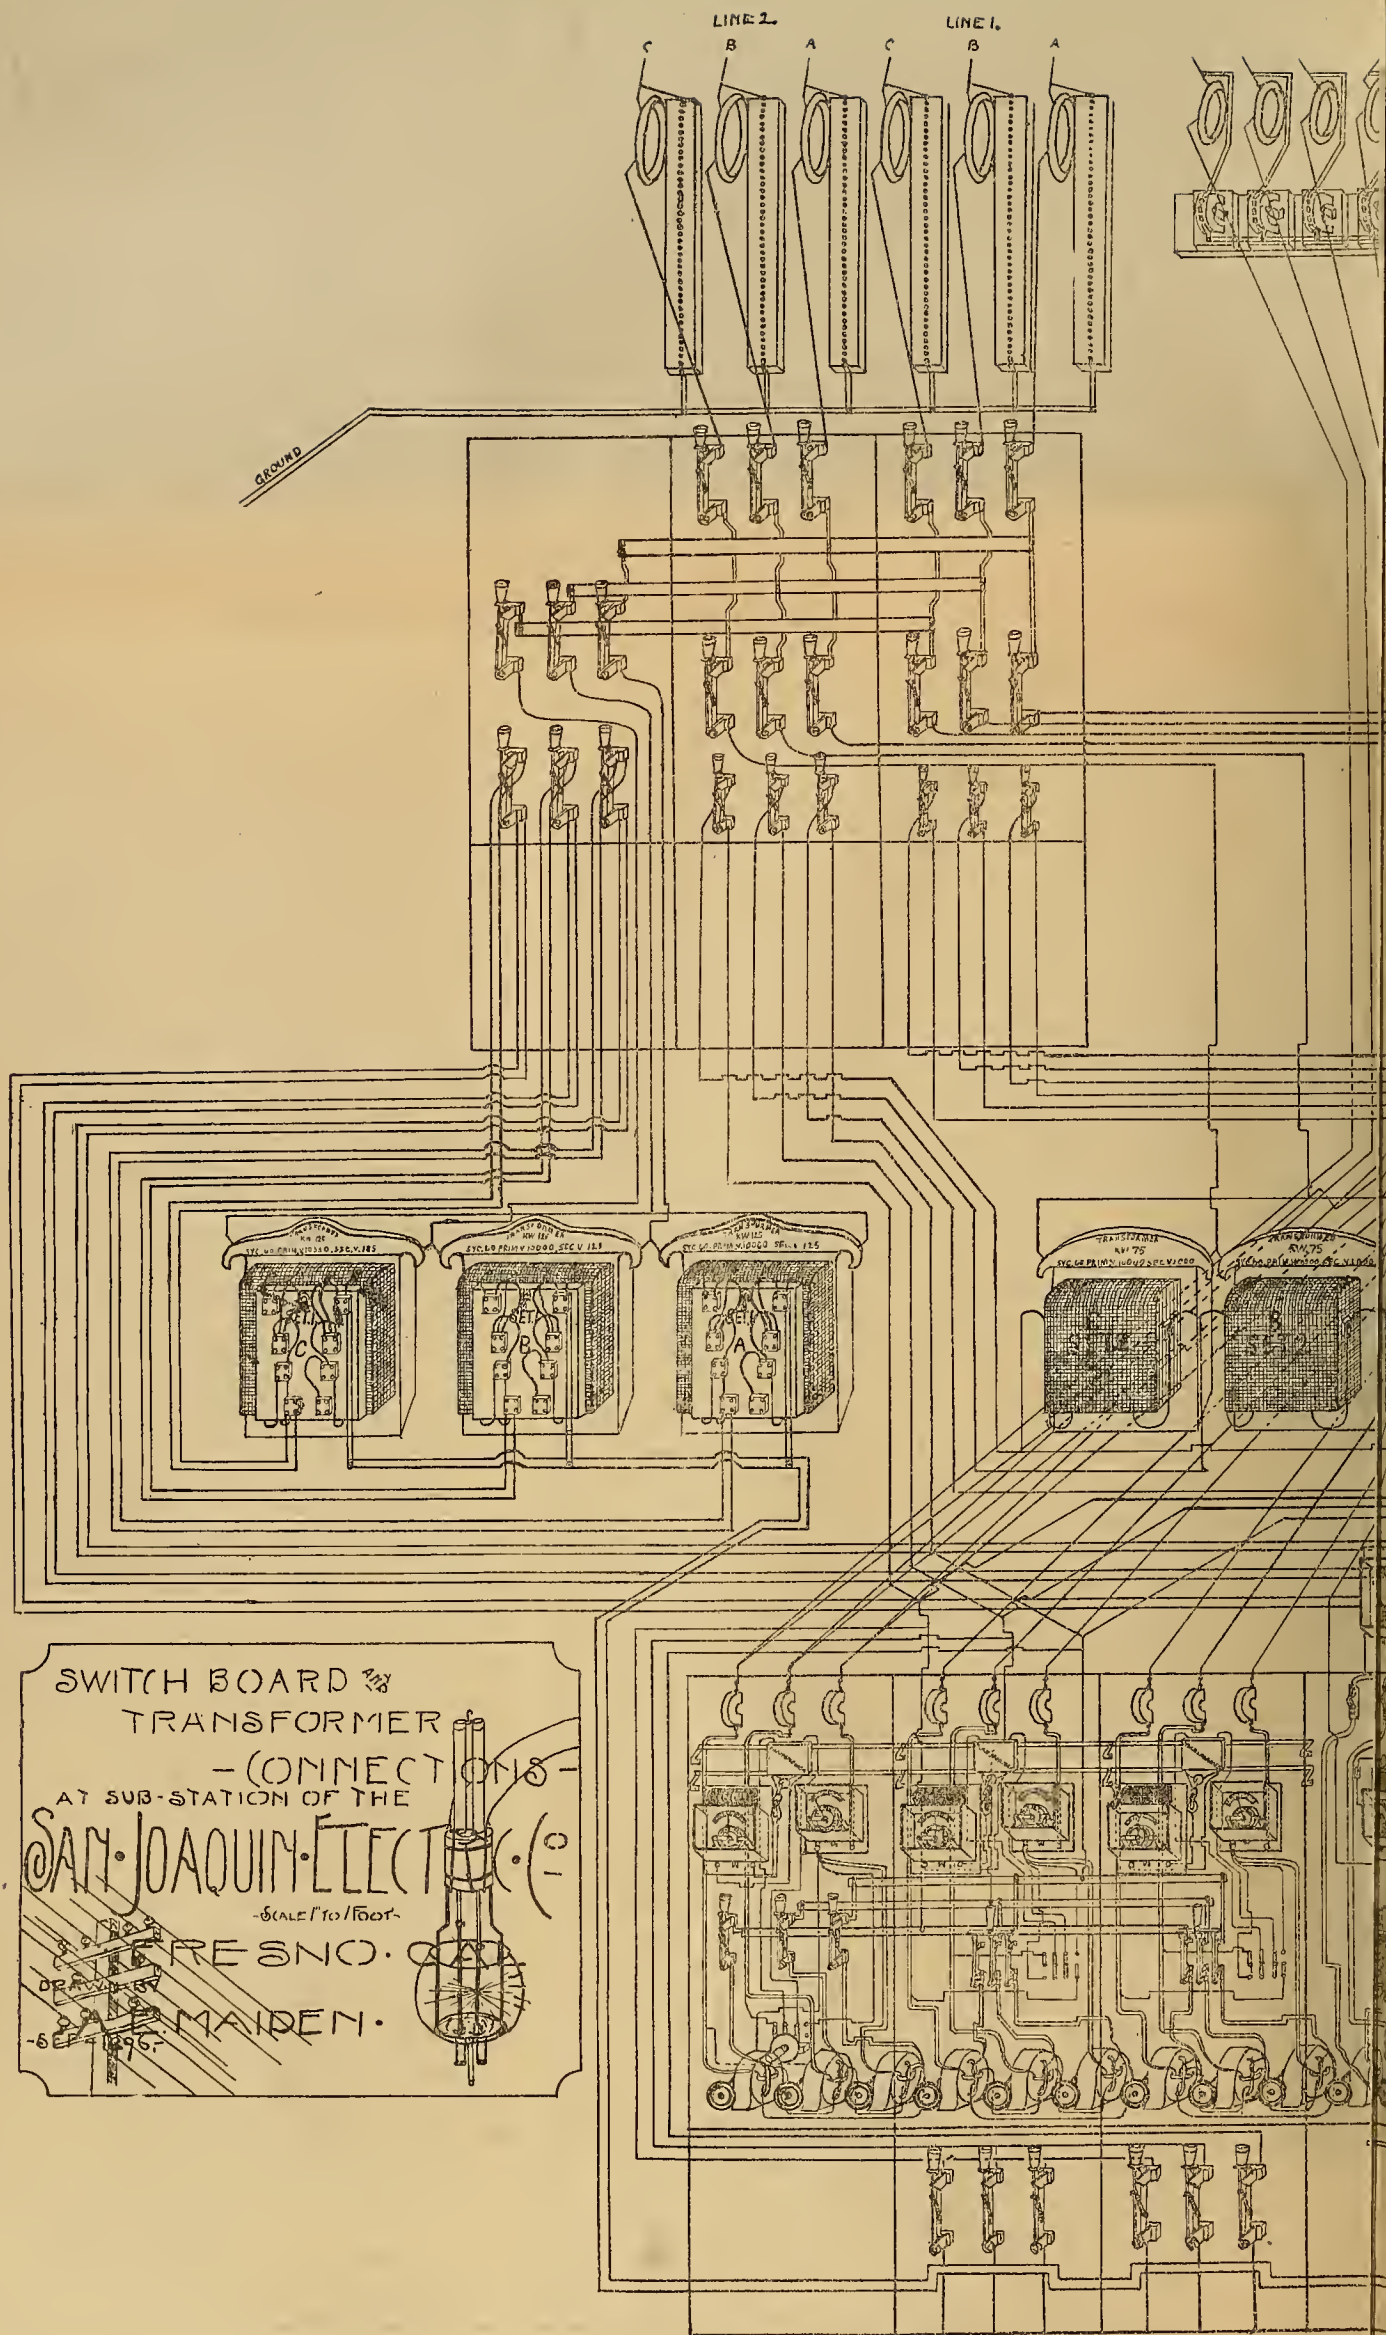 LINE 2. LINE 1.
C B A C B A
GROUND
TRANSFORMER
KW 125
CYC. 60. PRIM. V. 10000. SEC. V. 125
TRANSFORMER
KW 125
CYC. 60 PRIM V 10000 SEC V 125
TRANSFORMER
KW 125
CYC. 60. PRIM. V. 10000 SEC. V 125
TRANSFORMER
KW 75
CYC 60. PRIM V. 10000 SEC V 1000
TRANSFORMER
KW. 75
CYC 60. PRIM. V. 10000. SEC. V. 1000
SET 1
C
SET 1
B
SET 1
A
SET 2
B
SET 2
SWITCH BOARD AND
TRANSFORMER
-CONNECTIONS-
AT SUB-STATION OF THE
SAN·JOAQUIN·ELECTRIC·CO
-SCALE 1" TO 1 FOOT-
FRESNO·CAL
DRAWN BY
MAIDEN·
-SEP-1896-